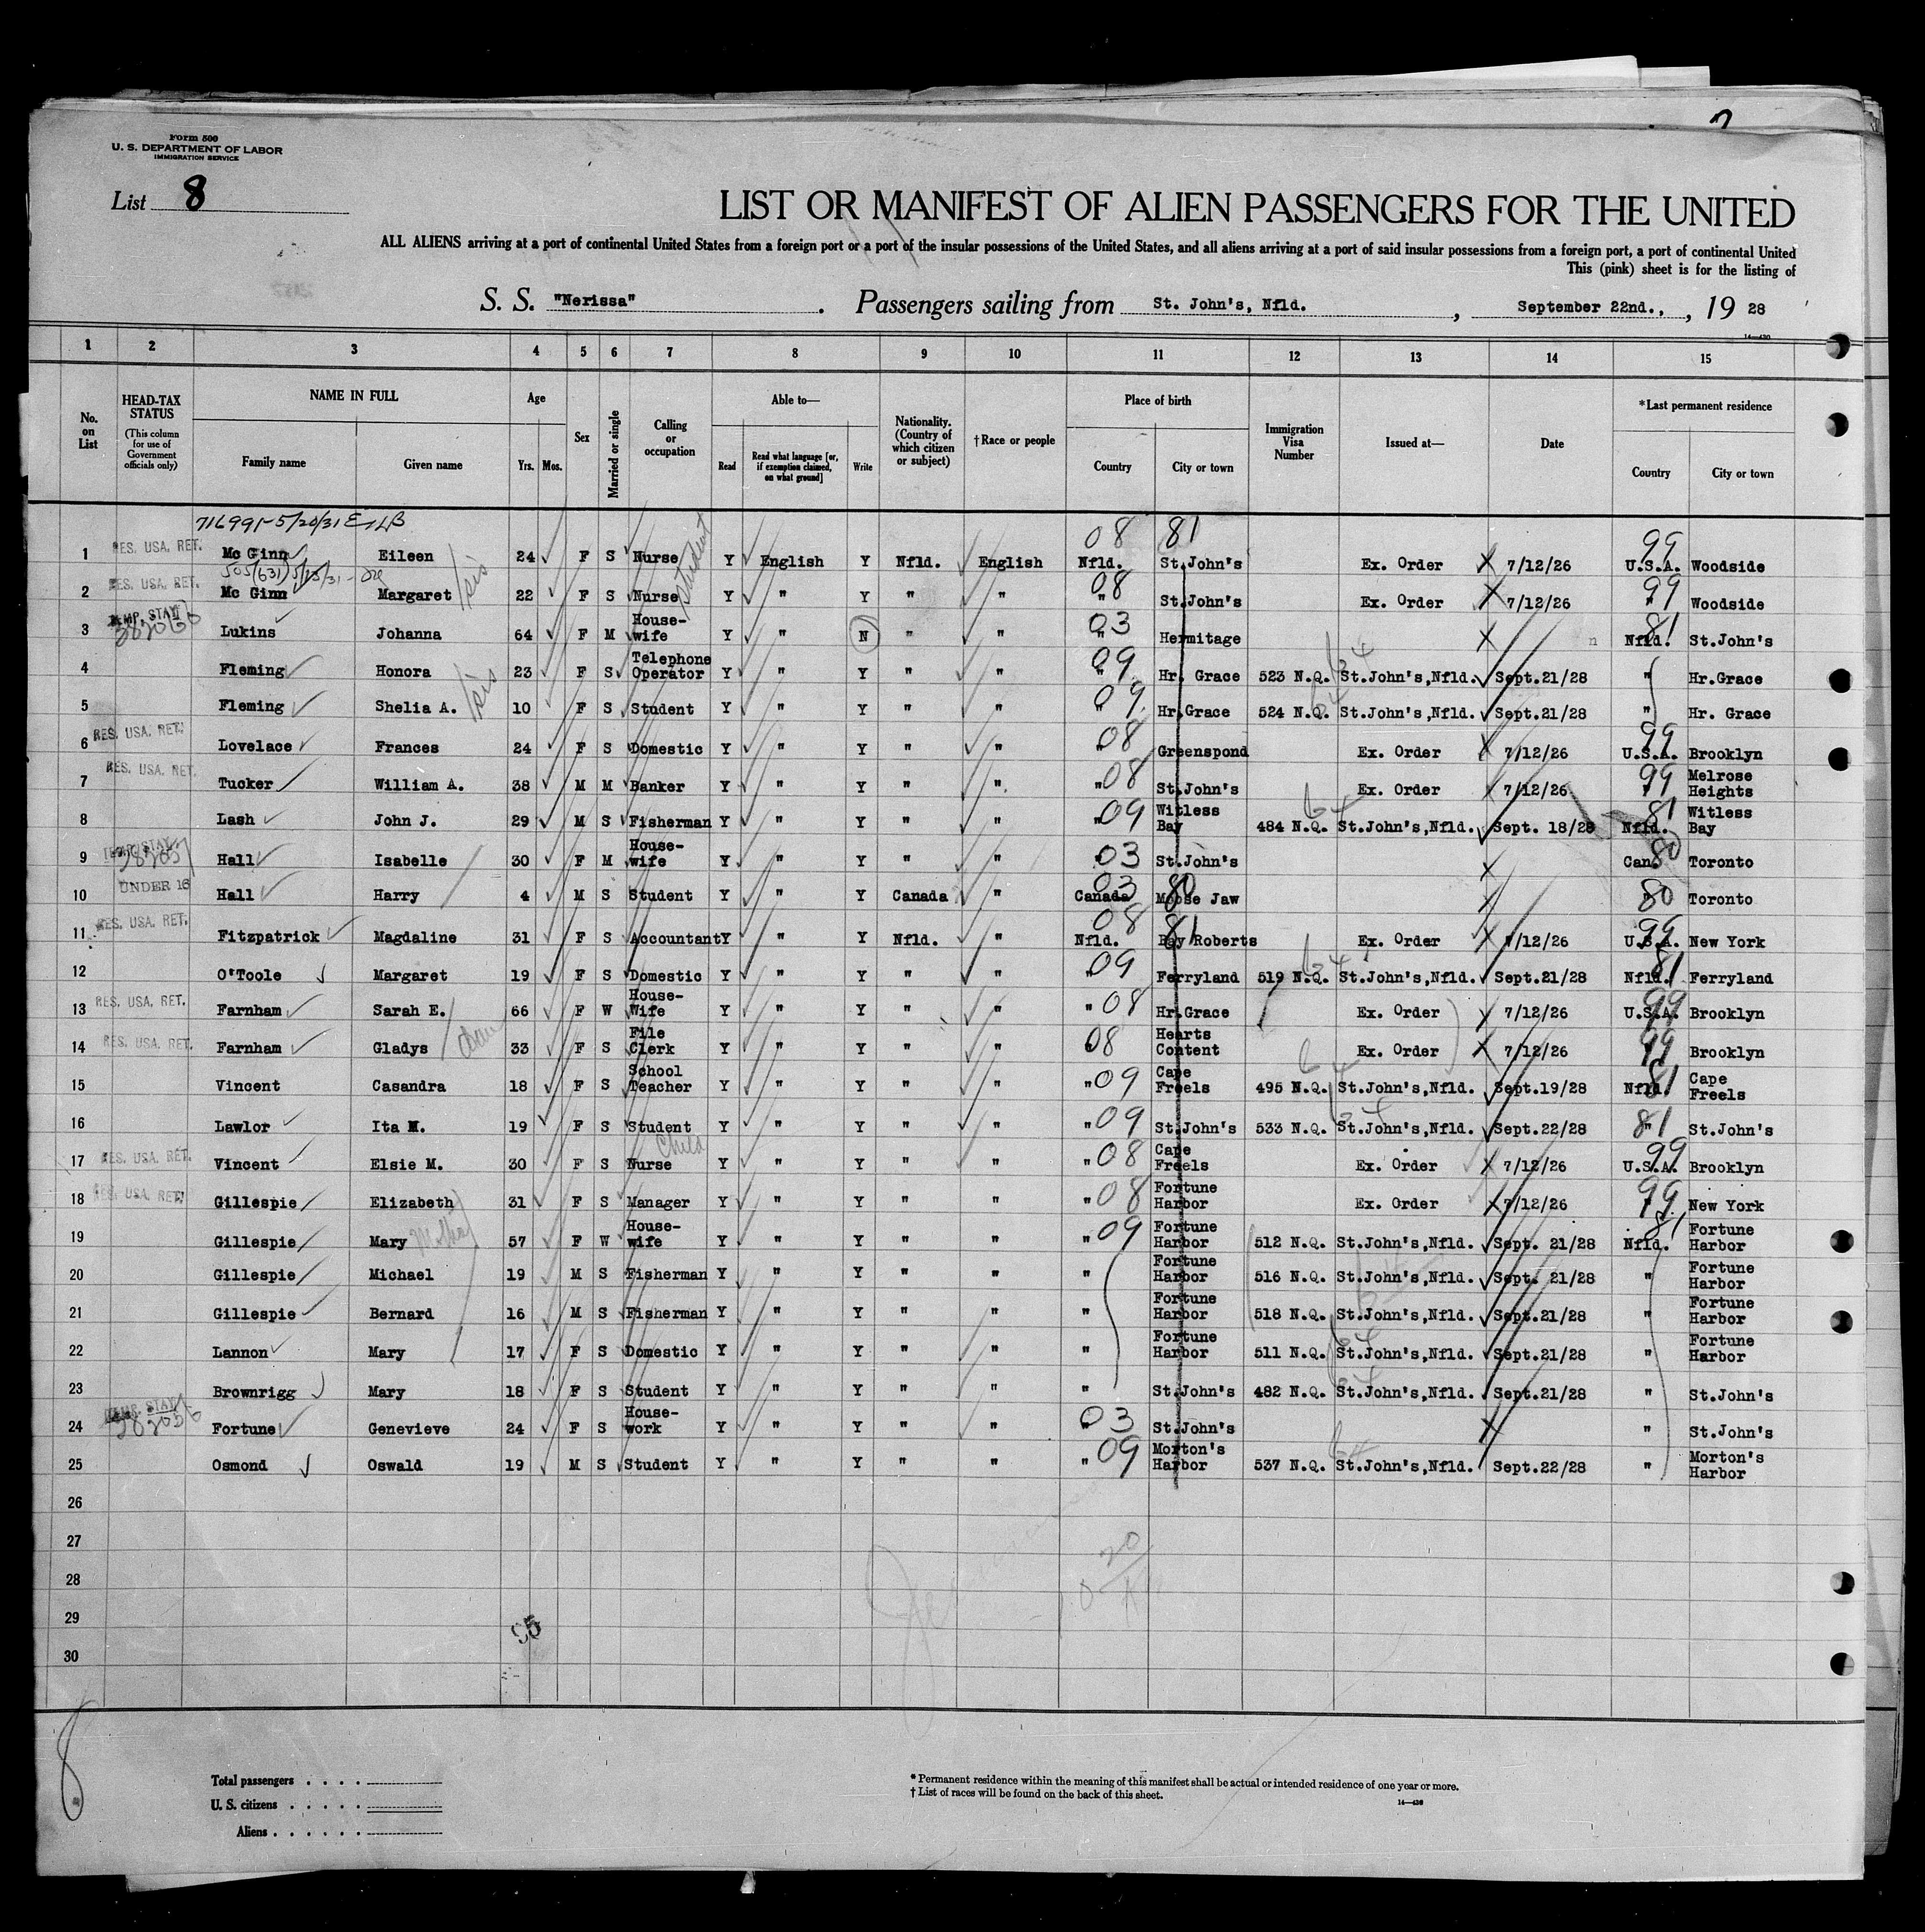 Form 500
U. S. DEPARTMENT OF LABOR
IMMIGRATION SERVICE
List 8
LIST OR MANIFEST OF ALIEN PASSENGERS FOR THE UNITED
ALL ALIENS arriving at a port of continental United States from a foreign port or a port of the insular possessions of the United States, and all aliens arriving at a port of said insular possessions from a foreign port, a port of continental United
This (pink) sheet is for the listing of
S. S. "Nerissa". Passengers sailing from St. John's, Nfld., September 22nd., , 19 28
1 2 3 4 5 6 7 8 9 10 11 12 13 14 15
No. on List
HEAD-TAX STATUS (This column for use of Government officials only)
NAME IN FULL
Family name Given name
Age Yrs. Mos.
Sex
Married or single
Calling or occupation
Able to— Read Read what language [or, if exemption claimed, on what ground] Write
Nationality. (Country of which citizen or subject)
†Race or people
Place of birth Country City or town
Immigration Visa Number
Issued at—
Date
*Last permanent residence Country City or town
716991-5/20/31
1 RES. USA. RET. Mc Ginn Eileen 24 F S Nurse Y English Y Nfld. English 08 Nfld. 81 St.John's Ex. Order 7/12/26 99 U.S.A. Woodside
505/631) 5/25/31
2 RES. USA. RET. Mc Ginn Margaret sis 22 F S Nurse student Y " Y " " 08 " St.John's Ex. Order 7/12/26 99 " Woodside
3 TEMP. STAY Lukins Johanna 64 F M House-wife Y " N " " 03 " Hermitage 81 Nfld. St.John's
4 Fleming Honora 23 F S Telephone Operator Y " Y " " 09 " Hr. Grace 523 N.Q. 64 St.John's,Nfld. Sept.21/28 " Hr.Grace
5 Fleming Shelia A. sis 10 F S Student Y " Y " " 09 " Hr.Grace 524 N.Q. 64 St.John's,Nfld. Sept.21/28 " Hr. Grace
6 RES. USA. RET. Lovelace Frances 24 F S Domestic Y " Y " " 08 " Greenspond Ex. Order 7/12/26 99 U.S.A. Brooklyn
7 RES. USA. RET. Tucker William A. 38 M M Banker Y " Y " " " 08 St.John's Ex. Order 7/12/26 99 " Melrose Heights
8 Lash John J. 29 M S Fisherman Y " Y " " " 09 Witless Bay 484 N.Q. 64 St.John's,Nfld. Sept. 18/28 81 Nfld. Witless Bay
9 TEMP. STAY Hall Isabelle 30 F M House-wife Y " Y " " " 03 St.John's Can. 80 Toronto
10 UNDER 16 Hall Harry 4 M S Student Y " Y Canada " 03 Canada 80 Moose Jaw " 80 Toronto
11 RES. USA. RET. Fitzpatrick Magdaline 31 F S Accountant Y " Y Nfld. " 08 Nfld. 81 Bay Roberts Ex. Order 7/12/26 99 U.S.A. New York
12 O'Toole Margaret 19 F S Domestic Y " Y " " " 09 Ferryland 519 N.Q. 64 St.John's,Nfld. Sept.21/28 81 Nfld. Ferryland
13 RES. USA. RET. Farnham Sarah E. 66 F W House-Wife Y " Y " " " 08 Hr.Grace Ex. Order 7/12/26 99 U.S.A. Brooklyn
14 RES. USA. RET. Farnham Gladys 33 F S File Clerk Y " Y " " " 08 Hearts Content Ex. Order 7/12/26 99 " Brooklyn
15 Vincent Casandra 18 F S School Teacher Y " Y " " " 09 Cape Freels 495 N.Q. 64 St.John's,Nfld. Sept.19/28 81 Nfld. Cape Freels
16 Lawlor Ita M. 19 F S Student Y " Y " " " 09 St.John's 533 N.Q. 64 St.John's,Nfld. Sept.22/28 81 " St.John's
17 RES. USA. RET. Vincent Elsie M. 30 F S Child Nurse Y " Y " " " 08 Cape Freels Ex. Order 7/12/26 99 U.S.A. Brooklyn
18 RES. USA. RET. Gillespie Elizabeth 31 F S Manager Y " Y " " " 08 Fortune Harbor Ex. Order 7/12/26 99 " New York
19 Gillespie Mary Mother 57 F W House-wife Y " Y " " " 09 Fortune Harbor 512 N.Q. St.John's,Nfld. Sept. 21/28 81 Nfld. Fortune Harbor
20 Gillespie Michael 19 M S Fisherman Y " Y " " " Fortune Harbor 516 N.Q. St.John's,Nfld. Sept. 21/28 " Fortune Harbor
21 Gillespie Bernard 16 M S Fisherman Y " Y " " " Fortune Harbor 518 N.Q. St.John's,Nfld. Sept.21/28 " Fortune Harbor
22 Lannon Mary 17 F S Domestic Y " Y " " " Fortune Harbor 511 N.Q. 64 St.John's,Nfld. Sept.21/28 " Fortune Harbor
23 Brownrigg Mary 18 F S Student Y " Y " " " St.John's 482 N.Q. 64 St.John's,Nfld. Sept.21/28 " St.John's
24 TEMP. STAY Fortune Genevieve 24 F S House-work Y " Y " " 03 " St.John's " St.John's
25 Osmond Oswald 19 M S Student Y " Y " " " 09 Morton's Harbor 537 N.Q. 64 St.John's,Nfld. Sept.22/28 " Morton's Harbor
26
27
28
29
30
95
8
Total passengers . . . .
U. S. citizens . . . . .
Aliens . . . . . .
* Permanent residence within the meaning of this manifest shall be actual or intended residence of one year or more.
† List of races will be found on the back of this sheet.